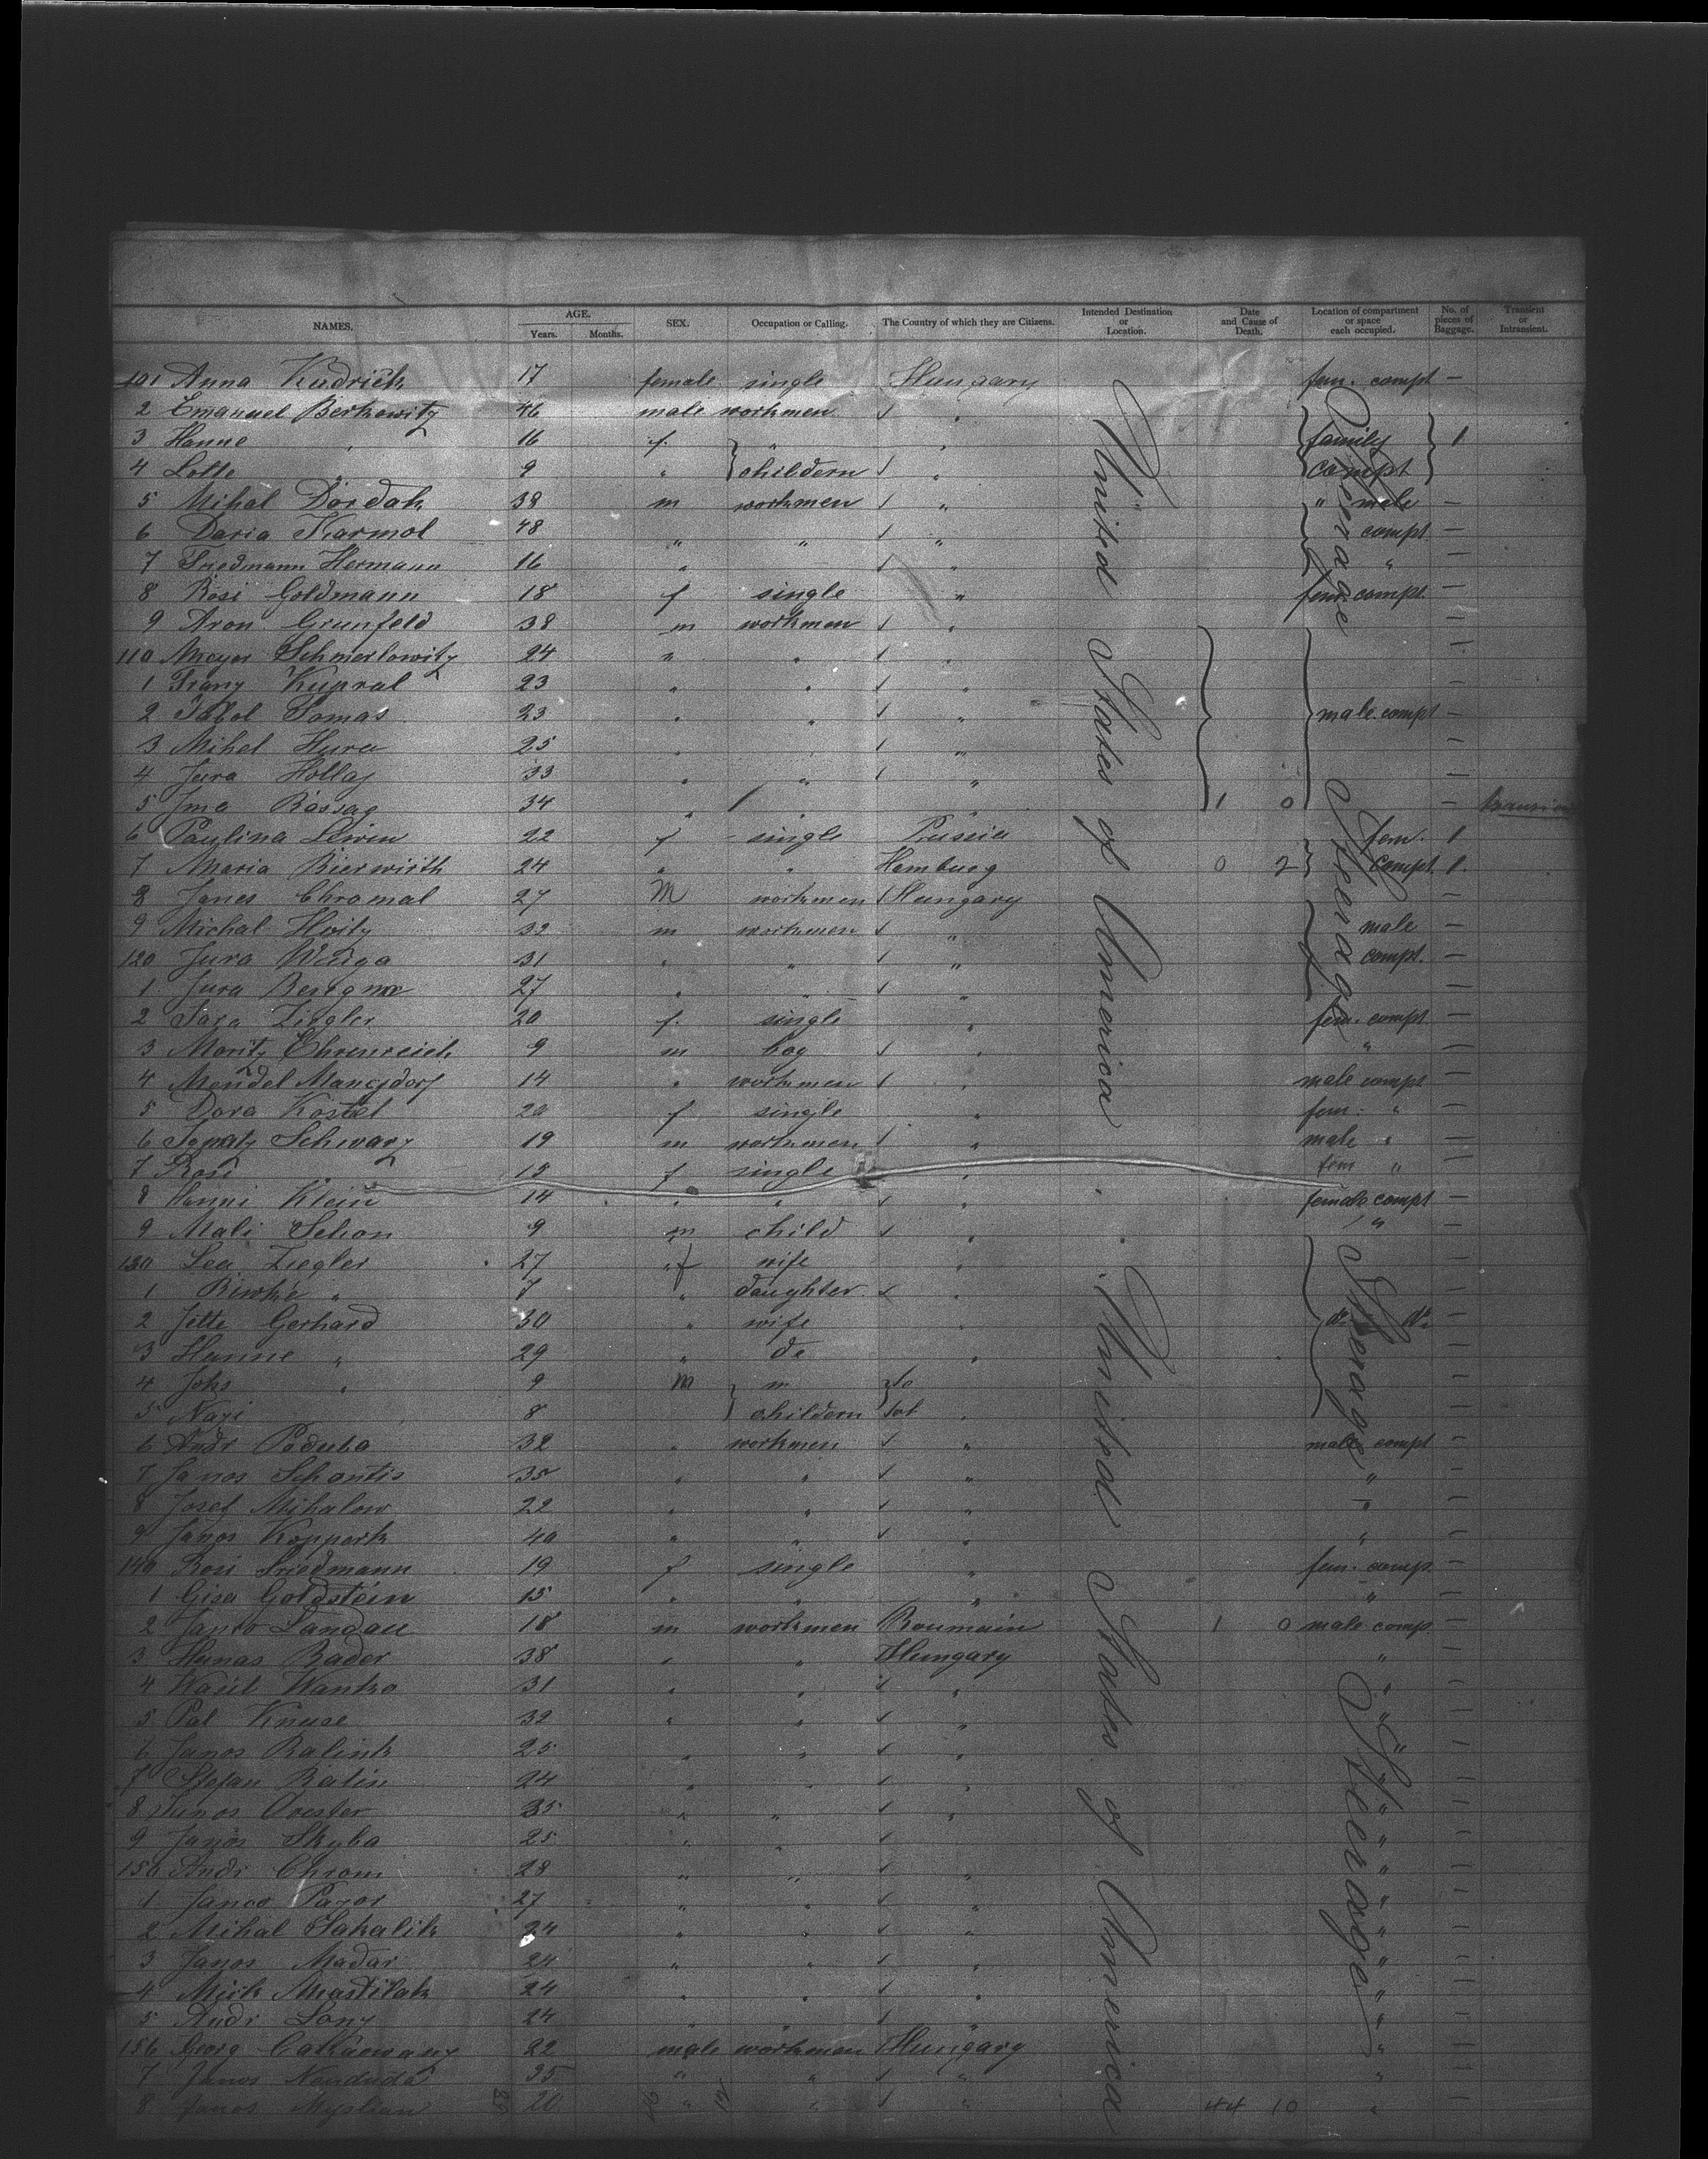 NAMES. AGE. Years. Months. SEX. Occupation or Calling. The Country of which they are Citizens. Intended Destination or Location. Date and Cause of Death. Location of compartment or space each occupied. No. of pieces of Baggage. Transient or Intransient.
101 Anna Kudrich 17 female single Hungary fem. compt —
2 Emanuel Berkowitz 46 male workmen ✓ "
3 Hanne " 16 f. " " family 1
4 Lotte " 9 " childern ✓ " compt
5 Mihal Dordak 38 m workmen ✓ " " male —
6 Daria Karmol 48 " " ✓ " compt. —
7 Friedmann Hermann 16 " ✓ " " —
8 Rosi Goldmann 18 f single " fem. compt. —
9 Aron Grunfeld 38 m workmen ✓ " —
110 Meyer Schmerlowitz 24 " " ✓ " —
1 Franz Kupral 23 " " ✓ " —
2 Jabol Tomas 23 " " ✓ " male compt —
3 Mihel Hura 25 " " ✓ " —
4 Jura Hollaj 33 " " ✓ " —
5 Jma Rossag 34 " " 1 0 —
6 Paulina Lewin 22 f single Prussia fem. 1
7 Maria Bierwirth 24 " " Hamburg 0 2 compt. 1.
8 Janes Chromal 27 M workmen ✓ Hungary —
9 Michal Hoitz 32 m workmen ✓ " male —
120 Jura Waiga 31 " " ✓ " compt. —
1 Jura 27 " " ✓ " —
2 Sara Ziegler 20 f. single " fem. compt —
3 Moritz Ehrenreich 9 m boy ✓ " " —
4 Mendel Mangsdorf 14 " workmen ✓ " male compt —
5 Dora Kostel 20 f single " fem. " —
6 Ignatz Schwarz 19 m workmen ✓ " male " —
7 Rosi " f single " fem " —
8 Hanni Klein 14 " " ✓ " female compt —
9 Mali Schon 9 m child ✓ " " —
130 Lea Ziegler 27 f wife " —
1 " 7 " daughter ✓ " —
2 Jette Gerhard 30 " wife " do do —
3 Hanne " 29 " do " —
4 " 9 M —
5 8 childern " —
6 Andr Paduba 32 " workmen ✓ " male compt —
7 Janos Schontis 35 " " ✓ " " —
8 Josef Mihalow 22 " " ✓ " " —
9 Janos 40 " " ✓ " " —
140 Rosi Friedmann 19 f single " fem. comp. —
1 Gisa Goldstein 15 " " " " —
2 Landau 18 m workmen Roumain 1 0 male comp. —
3 Hanas Bader 38 " " Hungary " —
4 Wasil Wanko 31 " " ✓ " " —
5 Pal Knuse 32 " " ✓ " " —
6 Janos Balink 25 " " ✓ " " —
7 Stefan Balin 24 " " ✓ " " —
8 Janos 35 " " ✓ " " —
9 Janos Skyba 25 " " ✓ " —
150 Andr Chrom 28 " " ✓ " " —
1 Janco Pazor 27 " " ✓ " " —
2 Mihal Sakalik 24 " " ✓ " " —
3 Janos Madar 24 " " ✓ " " —
4 Mich 24 " " ✓ " " —
5 Andr Lony 24 " " ✓ " " —
156 Georg 22 male workmen Hungary " —
7 Janos 35 " " ✓ " " —
8 Janos 20 " " ✓ " 44 10 " —
United States of America
United States of America
Steerage
Steerage
Steerage
Steerage